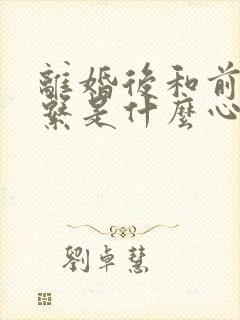 離婚後和前
繫是什麼心
劉卓慧